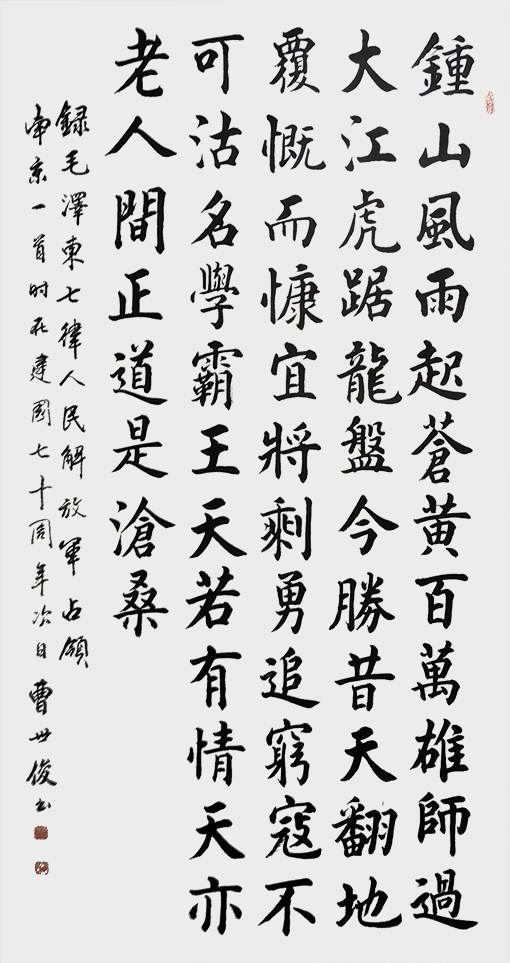 鍾山風雨起蒼黄百萬雄師過
大江虎踞龍盤今勝昔天翻地
覆慨而慷宜將剩勇追窮寇不
可沽名學霸王天若有情天亦
老人間正道是滄桑
録毛澤東七律人民解放軍占領
南京一首时在建國七十周年次日曹世俊书